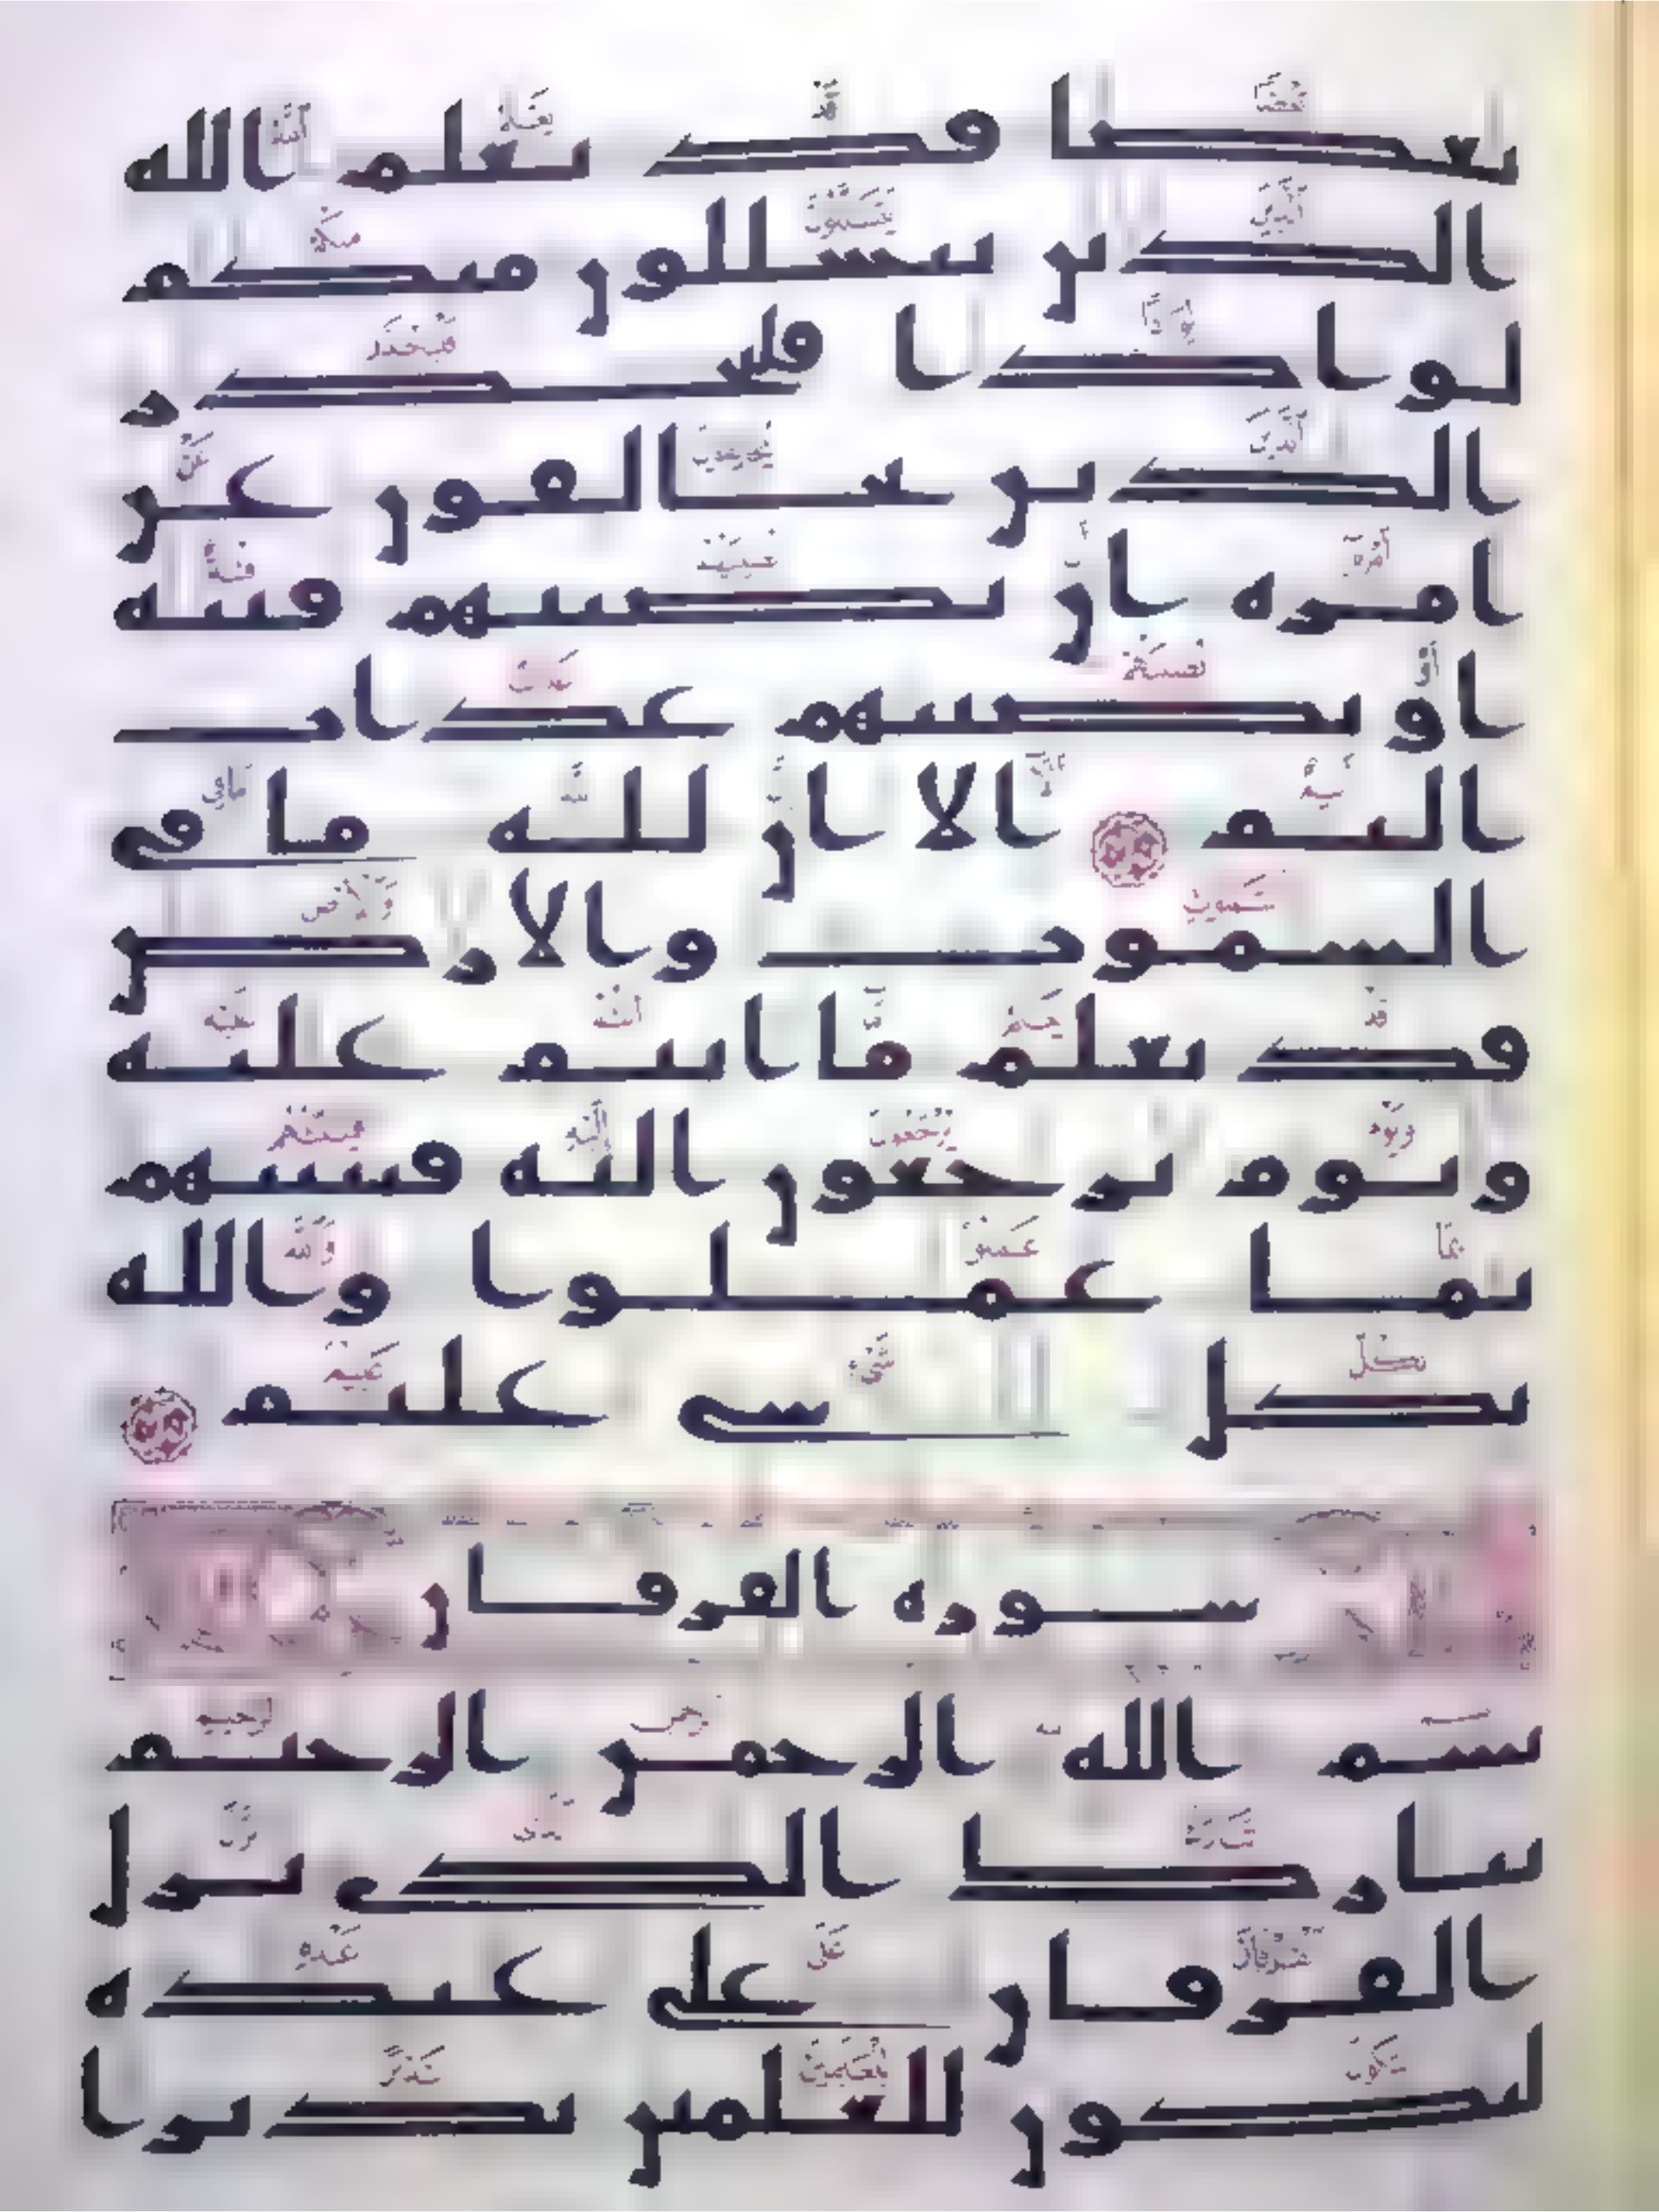 بعضا قد يعلم الله
الذين يتسللون منكم
لواذا فليحذر
الذين يخالفون عن
امره ان تصيبهم فتنه
او يصيبهم عذاب
اليم الا ان لله ما في
السموت والارض
قد يعلم ما انتم عليه
ويوم يرجعون اليه فينبهم
بما عملوا والله
بكل شي عليم
سوره الفرقان
بسم الله الرحمن الرحيم
تبارك الذي نزل
الفرقان على عبده
ليكون للعلمين نذيرا